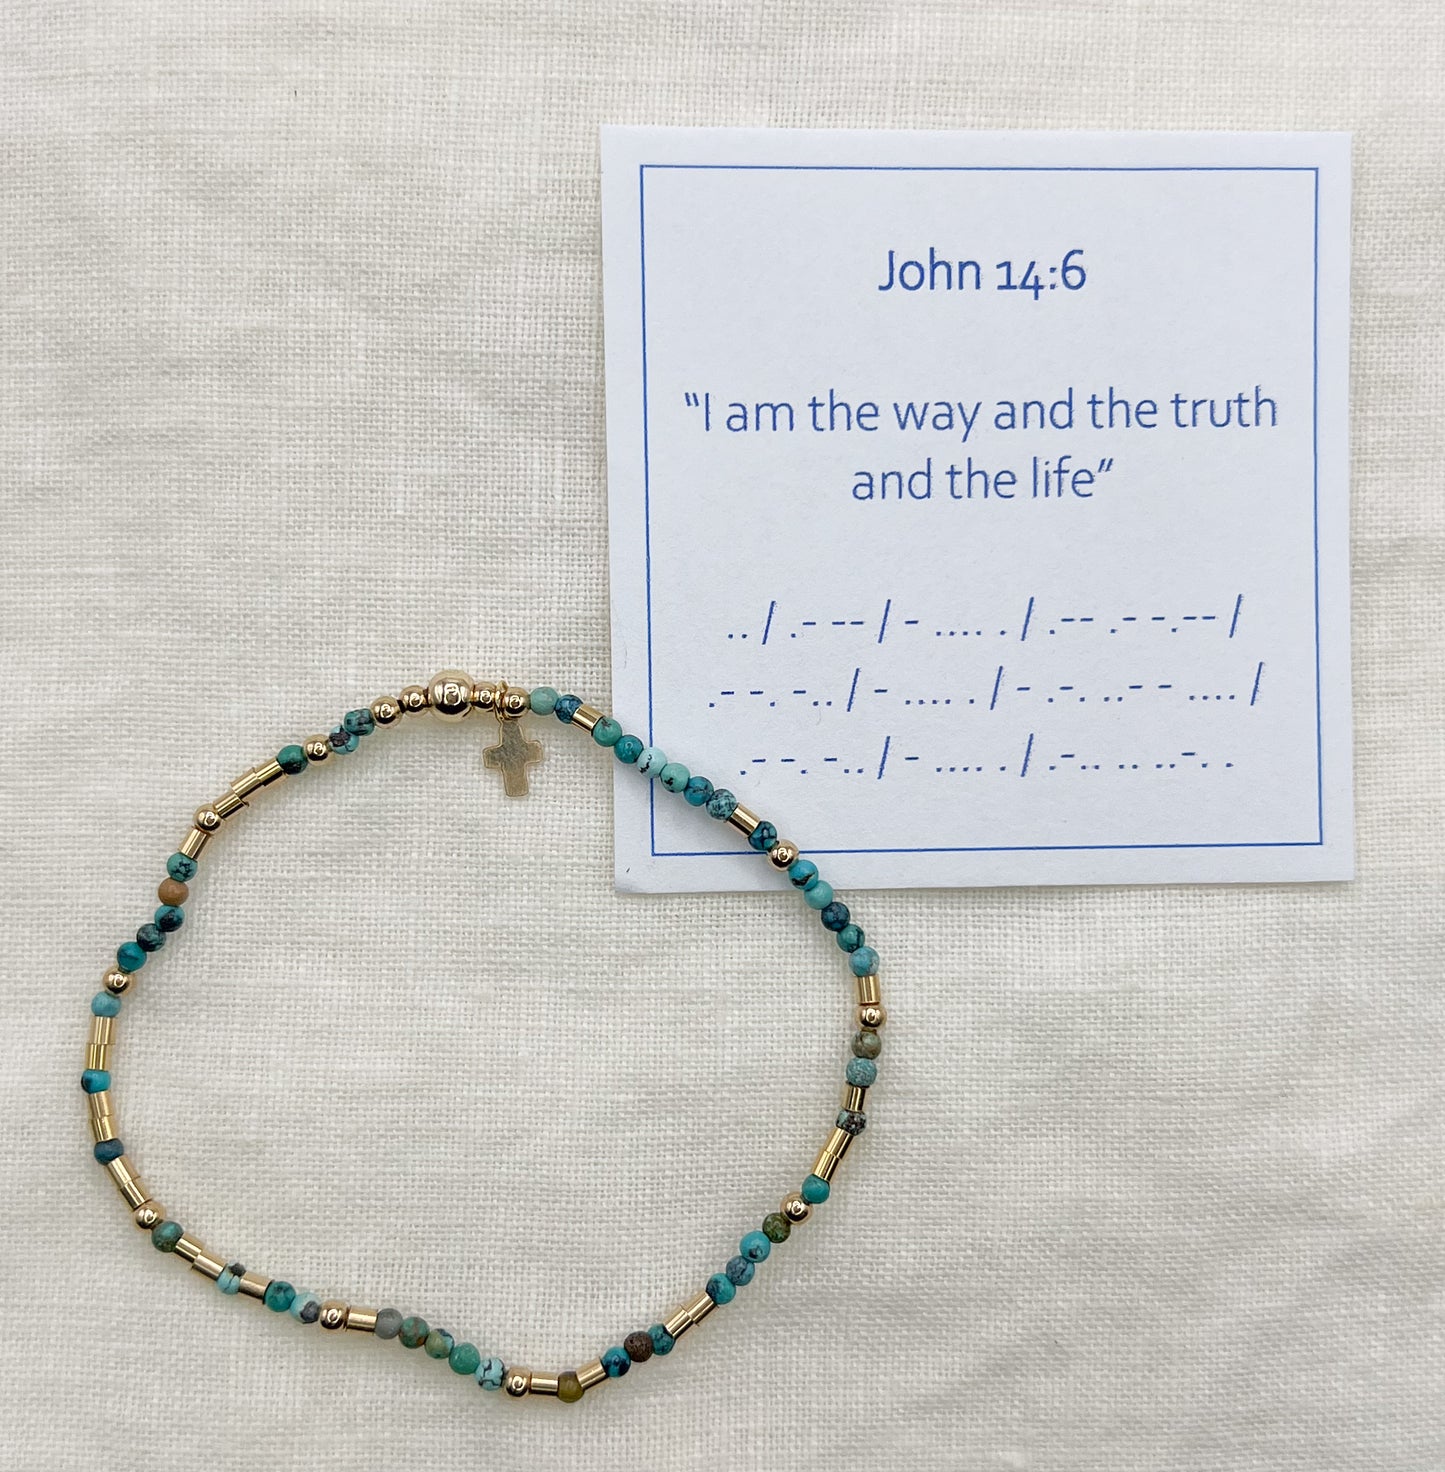 John 14:6
"I am the way and the truth
and the life"
.. / .- -- / - .... . / .-- .- -.-- /
.- -. -.. / - .... . / - .-. ..- - .... /
.- -. -.. / - .... . / .-.. .. ..-. .